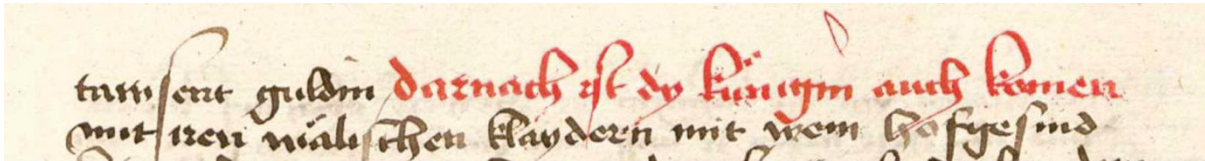 tawsent guldin darnach ist dy künigin auch komen
mit iren wälischen klaydern mit irem hofgesind